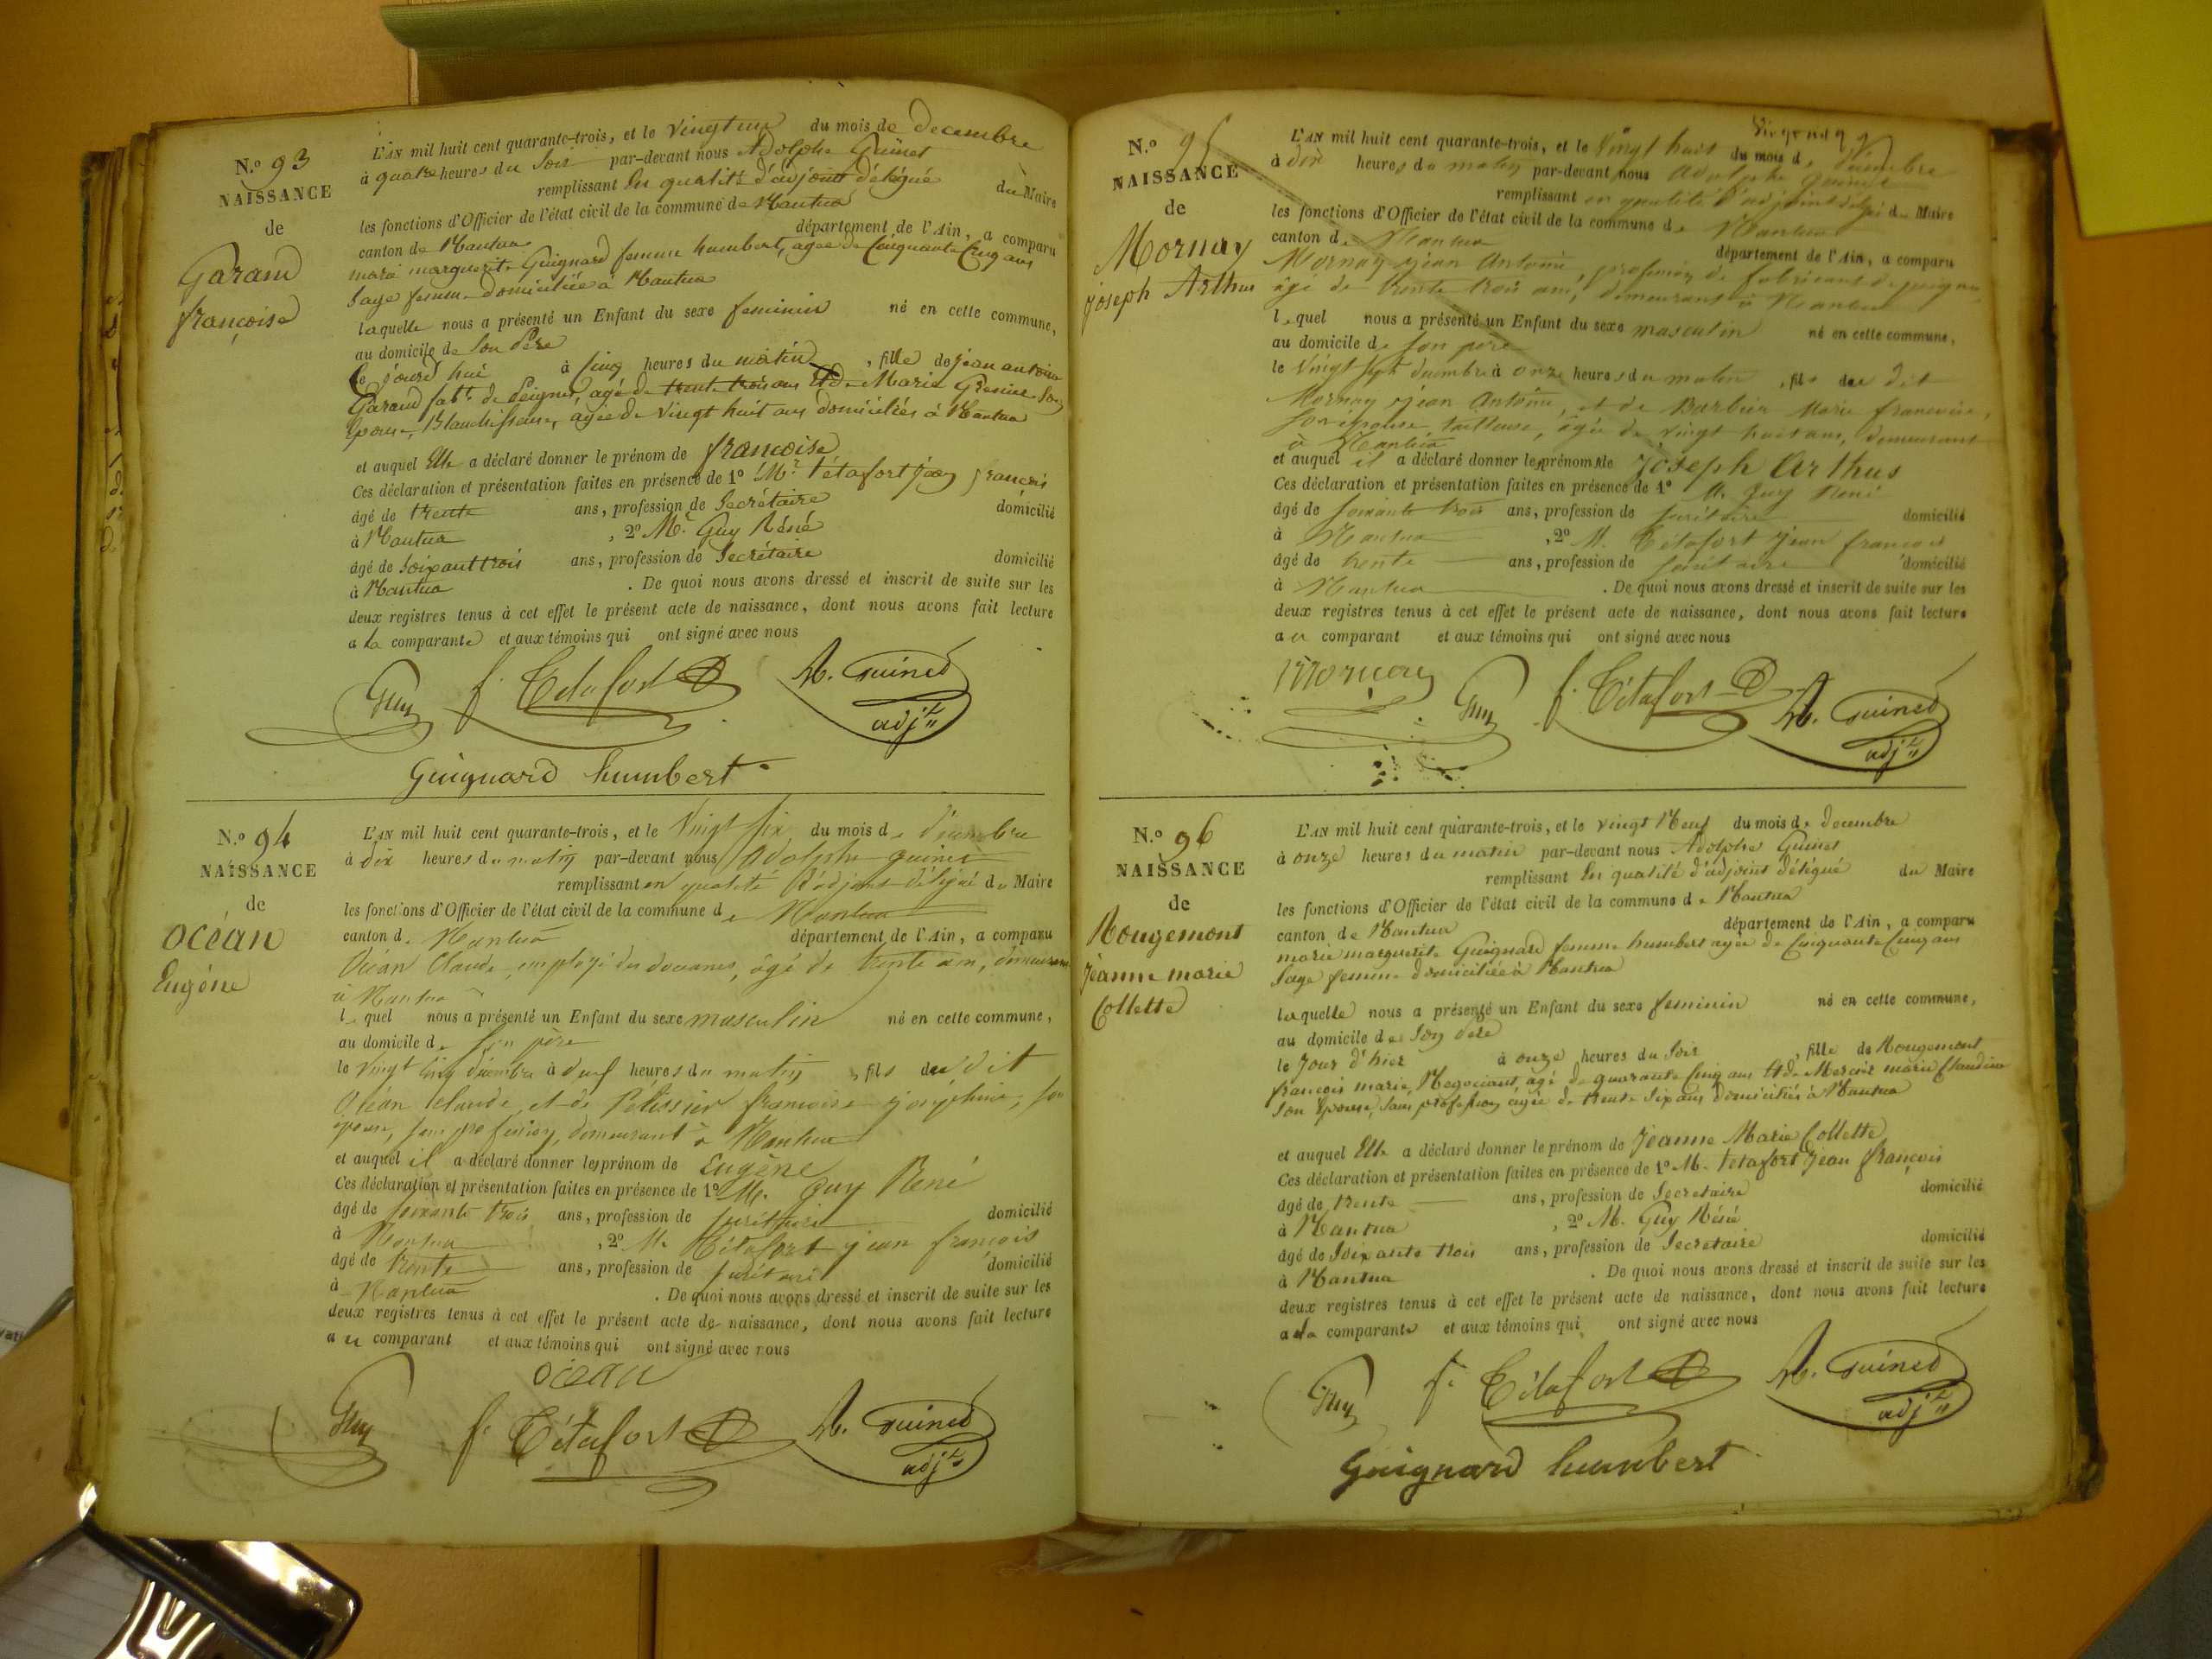 N.o 93
NAISSANCE
de
Garand
françoise
L'AN mil huit cent quarante-trois, et le Vingt un du mois de decembre
à quatre heures du Soir par-devant nous Adolphe Guinet
remplissant En qualité d'adjoint délégué du Maire
les fonctions d'Officier de l'état civil de la commune de Nantua
canton de Nantua département de l'Ain, a comparu
marie marguerite Guignard femme humbert, agée de Cinquante Cinq ans
Sage femme domiciliée à Nantua
laquelle nous a présenté un Enfant du sexe feminin né en cette commune,
au domicile de Son Père
le jourd'hui à Cinq heures du matin, fille de jean antoine
Garand fabt. de Peignes, agé de trente trois ans Et de Marie Son
Epouse, Blanchisseuse, agée de vingt huit ans domiciliés à Nantua
et auquel Elle a déclaré donner le prénom de françoise
Ces déclaration et présentation faites en présence de 1o Mr. Tétafort jean françois
âgé de trente ans, profession de Secrétaire domicilié
à Nantua, 2o Mr. Guy Réné
âgé de Soixant trois ans, profession de Secrétaire domicilié
à Nantua. De quoi nous avons dressé et inscrit de suite sur les
deux registres tenus à cet effet le présent acte de naissance, dont nous avons fait lecture
a la comparante et aux témoins qui ont signé avec nous
Guy f. Tétafort A. Guinet
adjt
Guignard humbert
N.o 94
NAISSANCE
de
Océan
Eugène
L'AN mil huit cent quarante-trois, et le Vingt Six du mois de décembre
à dix heures du matin par-devant nous Adolphe Guinet
remplissant en qualité d'adjoint délégué du Maire
les fonctions d'Officier de l'état civil de la commune de Nantua
canton de Nantua département de l'Ain, a comparu
Océan Claude, employé des douanes, âgé de trente un, demeurant
à Nantua
lequel nous a présenté un Enfant du sexe masculin né en cette commune,
au domicile de son père
le vingt cinq décembre à neuf heures du matin, fils du dit
Océan Claude, et de Pélissier françoise joséphine, son
épouse, sans profession, demeurant à Nantua
et auquel il a déclaré donner le prénom de Eugène
Ces déclaration et présentation faites en présence de 1o M. Guy René
âgé de soixante trois ans, profession de secrétaire domicilié
à Nantua, 2o M. Tétafort jean françois
âgé de trente ans, profession de secrétaire domicilié
à Nantua. De quoi nous avons dressé et inscrit de suite sur les
deux registres tenus à cet effet le présent acte de naissance, dont nous avons fait lecture
au comparant et aux témoins qui ont signé avec nous
océan
Guy f. Tétafort A. Guinet
adjt
N.o 95
NAISSANCE
de
Mornay
joseph Arthus
L'AN mil huit cent quarante-trois, et le Vingt huit du mois de décembre
à dix heures du matin par-devant nous Adolphe Guinet
remplissant en qualité d'adjoint délégué du Maire
les fonctions d'Officier de l'état civil de la commune de Nantua
canton de Nantua département de l'Ain, a comparu
Mornay jean Antoine, profession de fabricant de peignes,
âgé de trente trois ans, demeurant à Nantua
lequel nous a présenté un Enfant du sexe masculin né en cette commune,
au domicile de son père
le Vingt sept décembre à onze heures du matin, fils du dit
Mornay jean Antoine, et de Barbier Marie francoise,
son épouse, tailleuse, agée de vingt huit ans, demeurant
à Nantua
et auquel il a déclaré donner les prénoms de Joseph Arthus
Ces déclaration et présentation faites en présence de 1o M. Guy René
âgé de soixante trois ans, profession de secrétaire domicilié
à Nantua, 2o M. Tétafort jean francois
âgé de trente ans, profession de secrétaire domicilié
à Nantua. De quoi nous avons dressé et inscrit de suite sur les
deux registres tenus à cet effet le présent acte de naissance, dont nous avons fait lecture
au comparant et aux témoins qui ont signé avec nous
Mornay Guy f. Tétafort A. Guinet
adjt
N.o 96
NAISSANCE
de
Rougemont
jeanne marie
Collette
L'AN mil huit cent quarante-trois, et le vingt Neuf du mois de decembre
à onze heures du matin par-devant nous Adolphe Guinet
remplissant En qualité d'adjoint délégué du Maire
les fonctions d'Officier de l'état civil de la commune de Nantua
canton de Nantua département de l'Ain, a comparu
marie marguerite Guignard femme humbert agée de Cinquante Cinq ans
Sage femme domiciliée à Nantua
laquelle nous a présenté un Enfant du sexe feminin né en cette commune,
au domicile de Son Père
le Jour d'hier à onze heures du Soir, fille de Rougemont
francois marie, Negociant, agé de quarante Cinq ans Et de Mercier marie Claudine
Son Epouse, Sans profession agée de trente Six ans domiciliés à Nantua
et auquel Elle a déclaré donner le prénom de Jeanne Marie Collette
Ces déclaration et présentation faites en présence de 1o M. Tetafort Jean françois
âgé de trente ans, profession de Secretaire domicilié
à Nantua, 2o M. Guy Réné
âgé de Soixante trois ans, profession de Secretaire domicilié
à Nantua. De quoi nous avons dressé et inscrit de suite sur les
deux registres tenus à cet effet le présent acte de naissance, dont nous avons fait lecture
a la comparante et aux témoins qui ont signé avec nous
Guy f. Tétafort A. Guinet
adjt
Guignard humbert